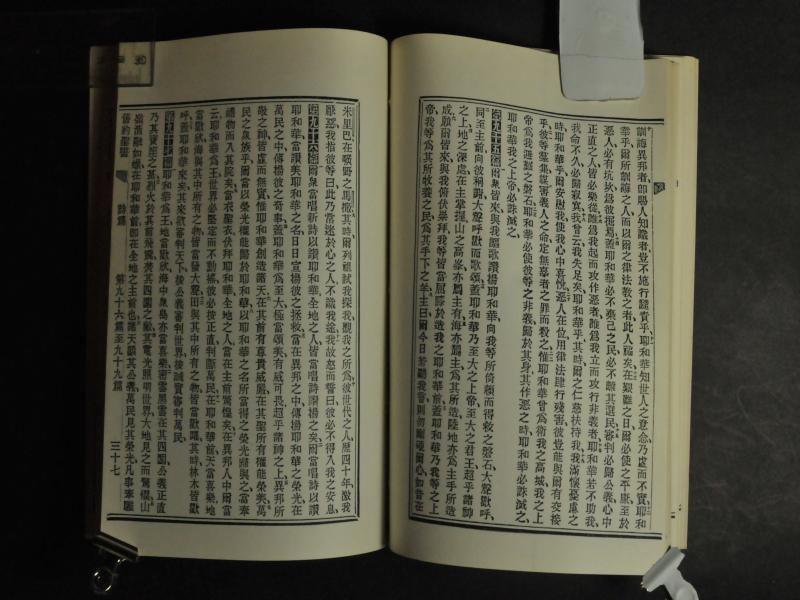 訓誨異邦者卽賜人知識者豈不施行譴責乎耶和華知世人之意念乃虛而不實耶和
華乎爾所訓誨之人而以爾之律法敎之者此人福矣在艱難之日爾必使之平康至於
惡人必有坑阱爲彼掘焉蓋耶和華必不棄己之民必不離其選民審判必歸公義心中
正直之人皆必樂從誰爲我起而攻作惡者誰爲我立而攻行非義者耶和華若不助我
我命不久必歸寂寞我曾云我失足矣耶和華乎其時爾之仁慈扶持我我滿懷憂慮之
時耶和華乎爾安慰我使我心中喜悅惡人在位用律法肆行殘害彼豈能與爾有交接
乎彼等羣集謀害義人之命定無辜者之罪而殺之惟耶和華曾爲衛我之高城我之上
帝爲我避難之磐石耶和華必使彼等之非義歸於其身其作惡之時耶和華必誅滅之
耶和華我之上帝必誅滅之
第九十五篇爾衆皆來與我謳歌讚揚耶和華向我等所倚賴而得救之磐石大聲歡呼
同至主前向彼稱謝大聲呼歡而歌頌蓋耶和華乃至大之上帝至大之君王超乎諸神
之上地之深處在主掌握山之高峯亦屬主有海亦屬主爲其所造陸地亦爲主手所造
成願爾皆來與我俯伏崇拜我等皆當屈膝於造我之耶和華前蓋耶和華乃我等之上
帝我等爲其所牧養之民爲其手下之羊主曰爾今日若聽我言則勿剛愎爾心如昔在
米里巴在曠野之馬撒其時爾列祖試我探我觀我之所爲彼世代之人歷四十年激我
厭惡我指彼等曰此乃常迷於心之人不識我途我故怒而誓曰彼必不得入我之安息
第九十六篇爾衆當唱新詩以讚耶和華全地之人皆當唱詩讚揚之矣爾當唱詩以讚
耶和華當讚美耶和華之名日日宣揚彼之拯救當在異邦之中傳揚耶和華之榮光在
萬民之中傳揚彼之奇事蓋耶和華爲至大極當頌美有威可畏超乎諸神之上異邦所
敬之神皆虛而無實惟耶和華創造諸天在其前有尊貴威嚴在其聖所有權能榮美萬
民之衆族乎爾當以榮光權能歸於耶和華以耶和華之名所當得之榮光歸與之當奉
禮物而入其院矣當衣聖衣伏拜耶和華全地之人當在主前驚惶矣在異邦人中爾當
云耶和華爲王世界必堅定而不動搖彼必按正直判斷萬民在耶和華前天當喜樂地
當歡欣海與其中所有之物皆當發大聲田與其中所有之物皆當歡躍其時林木皆歡
呼蓋耶和華來矣其來欲審判天下按公義審判世界按誠實審判萬民
第九十七篇耶和華爲王地當歡欣海中衆島亦當喜樂密雲黑雲在其四圍公義正直
乃其寶座之基烈火於其前飛騰焚其四圍之敵其電光照明世界大地見之而驚懼山
嶺消融如蠟在耶和華前卽在全地之主前也諸天讚其公義萬民見其榮光凡事奉雕
舊約聖書
詩篇
第九十六篇至九十九篇
三十七